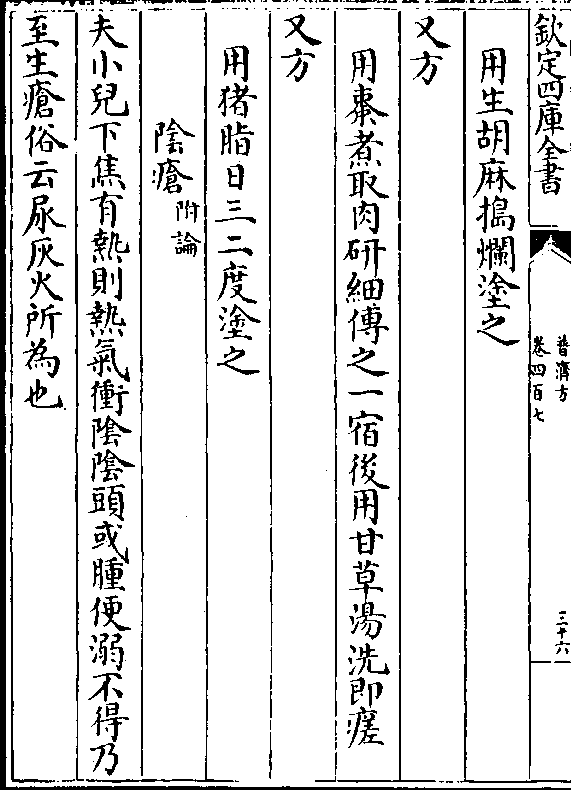 欽定四庫全書
普濟方
卷四百七
三十六
用生胡麻搗爛塗之
又方
用棗煮取肉研細傅之一宿後用甘草湯洗即瘥
又方
用猪脂日三二度塗之
陰瘡附論
夫小兒下焦有熱則熱氣衝陰陰頭或腫便溺不得乃
至生瘡俗云尿灰火所為也